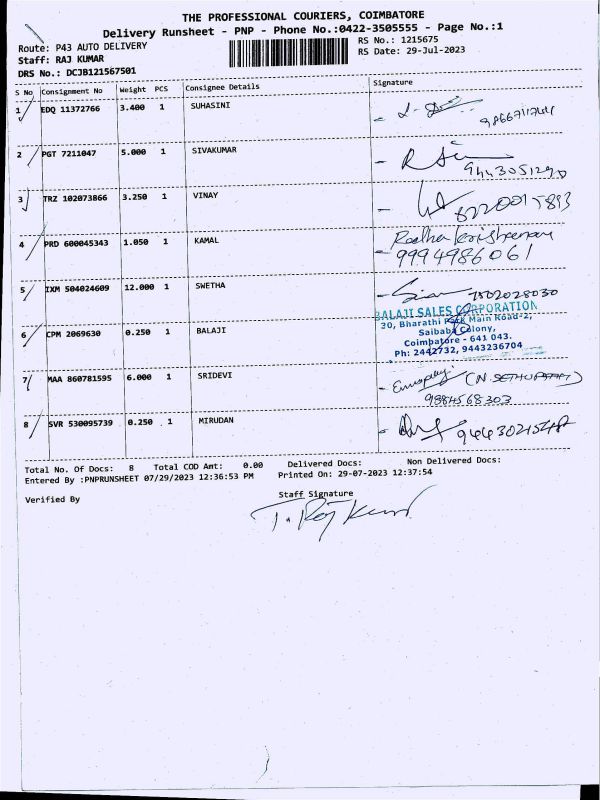 THE PROFESSIONAL COURIERS, COIMBATORE
Delivery Runsheet - PNP - Phone No.:0422-3505555 - Page No.:1
Route: P43 AUTO DELIVERY
RS No.: 1215675
Staff: RAJ KUMAR
RS Date: 29-Jul-2023
DRS No.: DCJB121567501
S No Consignment No Weight PCS Consignee Details Signature
1 EDQ 11372766 3.400 1 SUHASINI
2 PGT 7211047 5.000 1 SIVAKUMAR
3 TRZ 102073866 3.250 1 VINAY
4 PRD 600045343 1.050 1 KAMAL Radha krishnan
9994986061
5 IXM 504024609 12.000 1 SWETHA
BALAJI SALES CORPORATION
30, Bharathi Park Main Road-2,
6 CPM 2069630 0.250 1 BALAJI Saibaba Colony,
Coimbatore - 641 043.
Ph: 2442732, 9443236704
7 MAA 860781595 6.000 1 SRIDEVI
9884568303
8 SVR 530095739 0.250 1 MIRUDAN
Total No. Of Docs: 8 Total COD Amt: 0.00 Delivered Docs: Non Delivered Docs:
Entered By :PNPRUNSHEET 07/29/2023 12:36:53 PM Printed On: 29-07-2023 12:37:54
Verified By Staff Signature
T. Raj Kumar